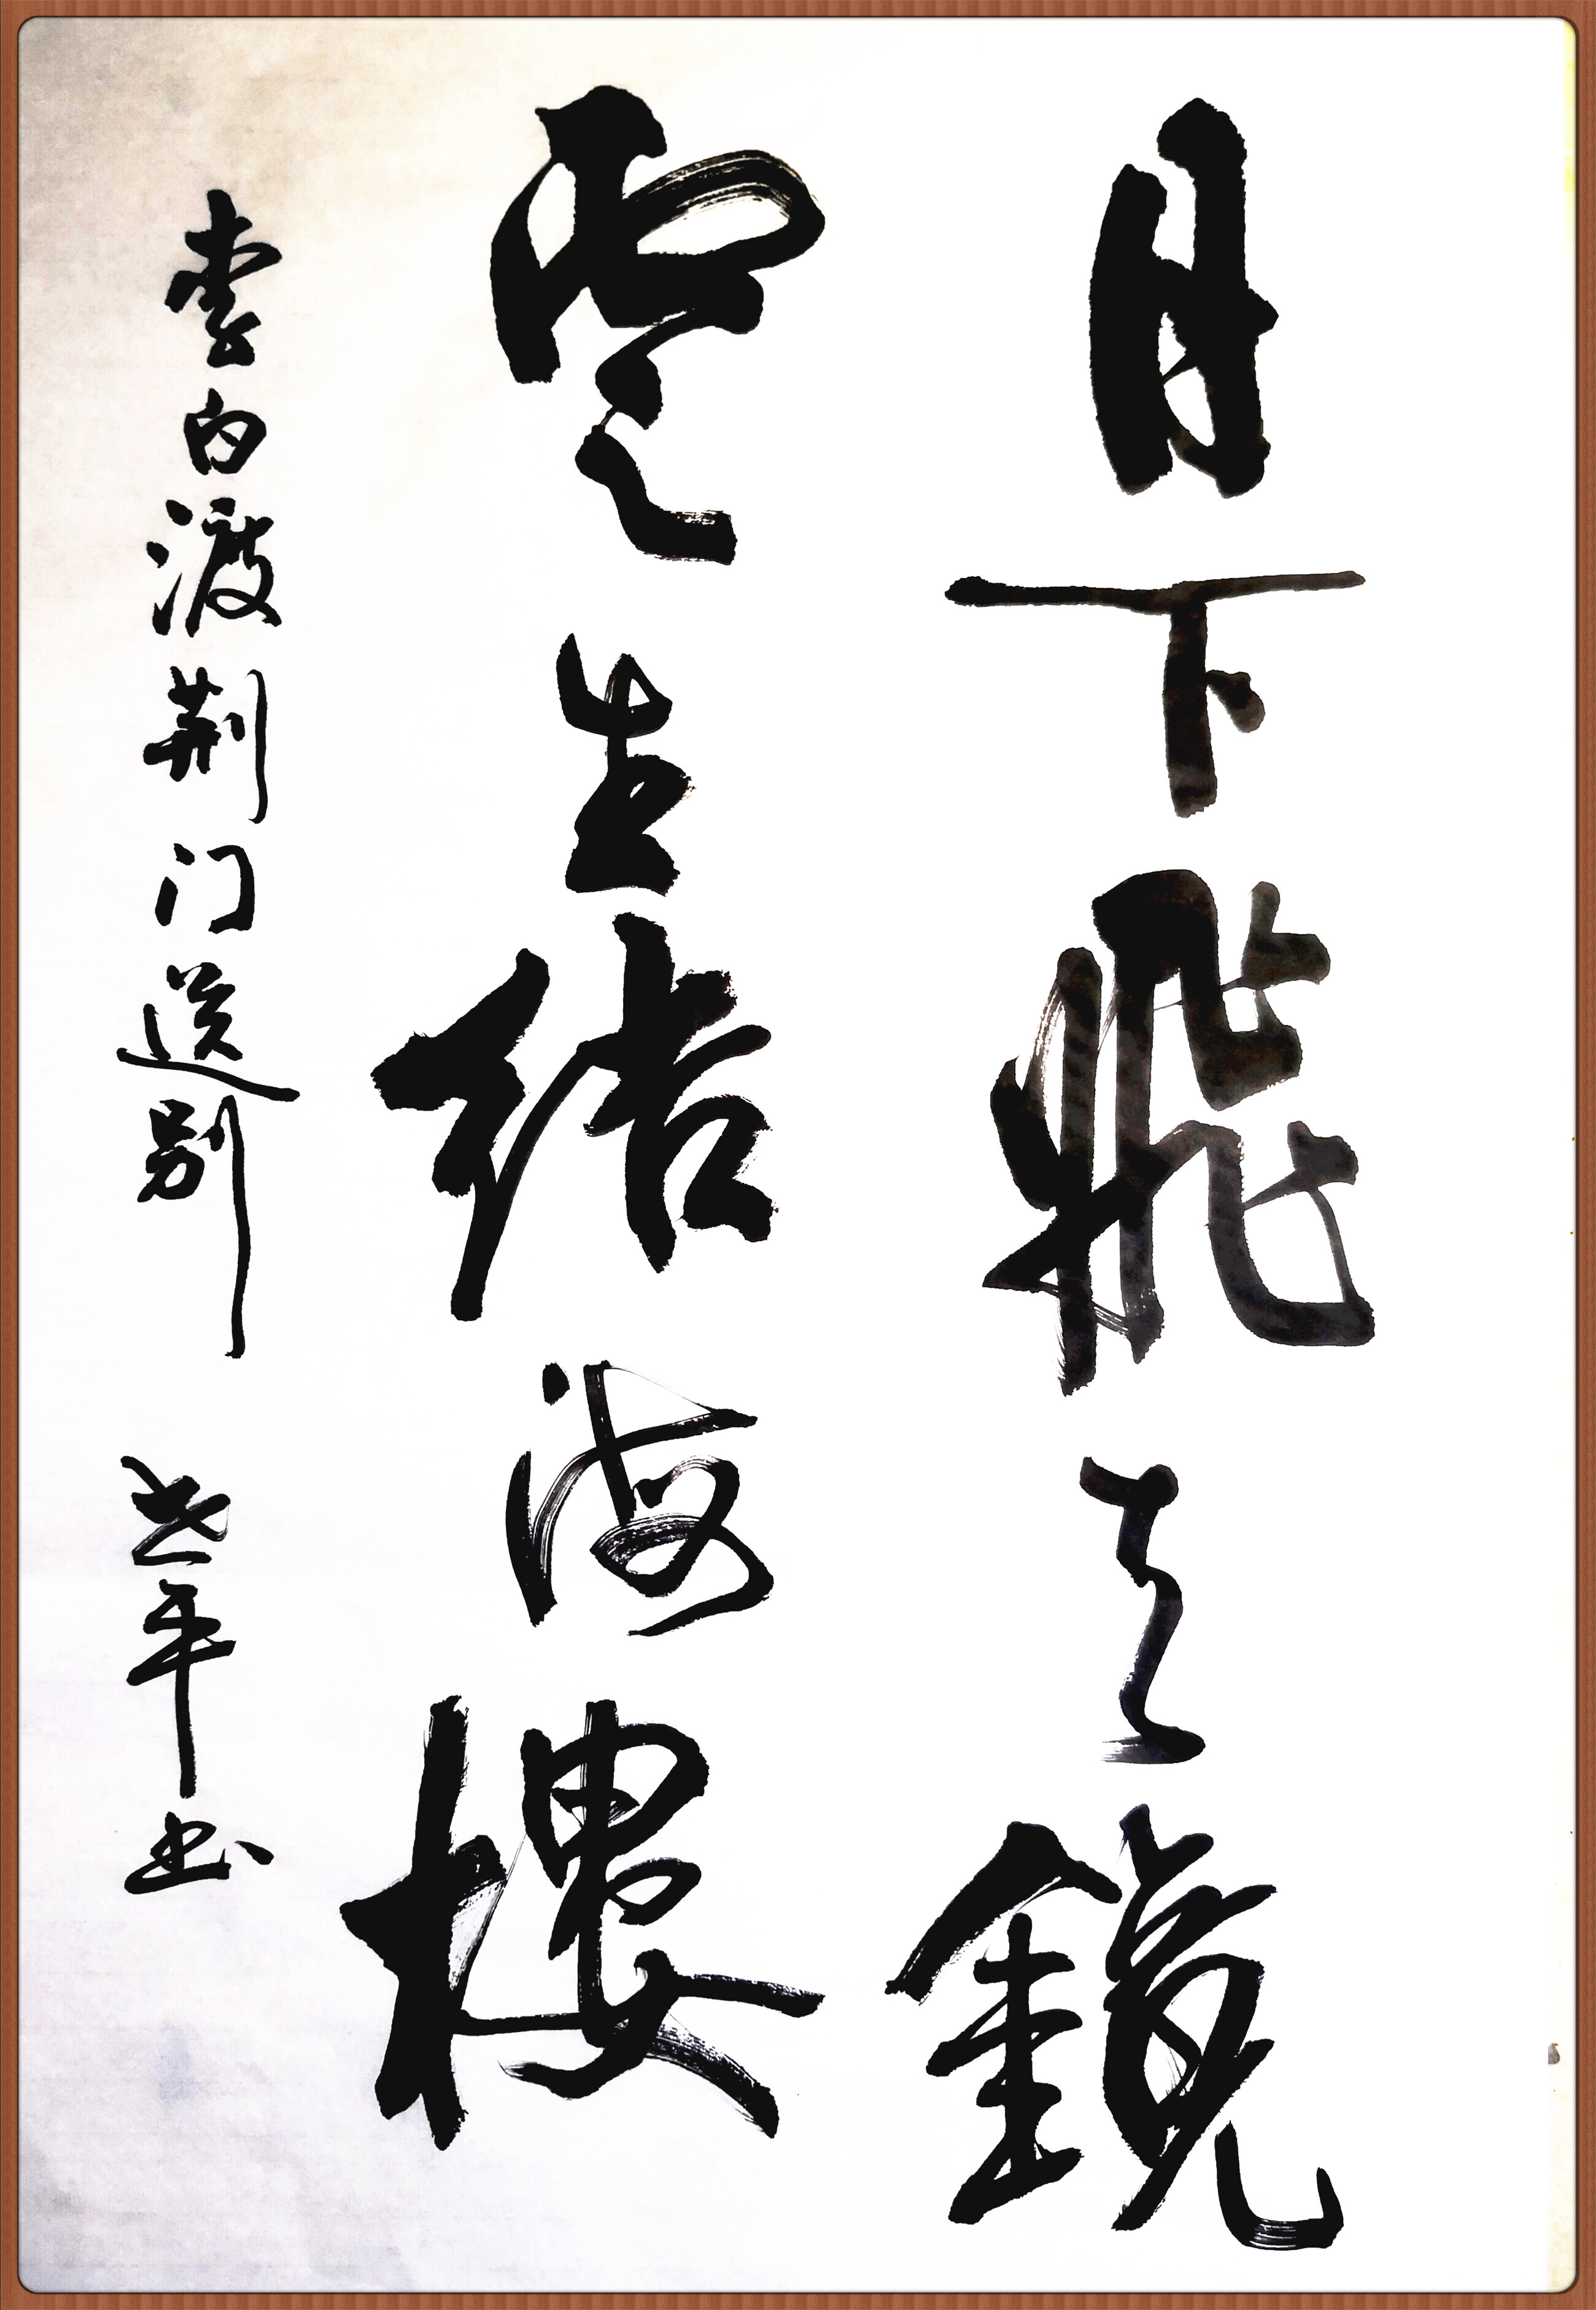 月下飛天鏡
雲生結海樓
李白渡荆门送别 书